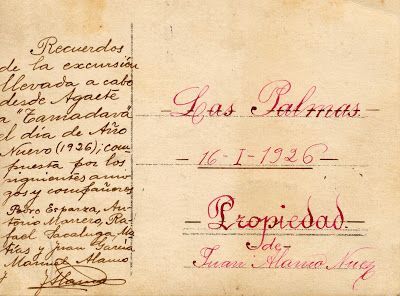 Recuerdos
de la excursión
llevada a cabo
desde Agaete
a "Tamadava"
el día de Año
Nuevo (1926); com
puesta por los
siguientes ami
gos y compañeros
Pedro Esparza, An-
tonio Marrero, Ra-
fael Sacaluga, Ma
tías y Juan García
y Manuel Alamo
Las Palmas
16-I-1926
Propiedad
de
Juan Alamo Núez